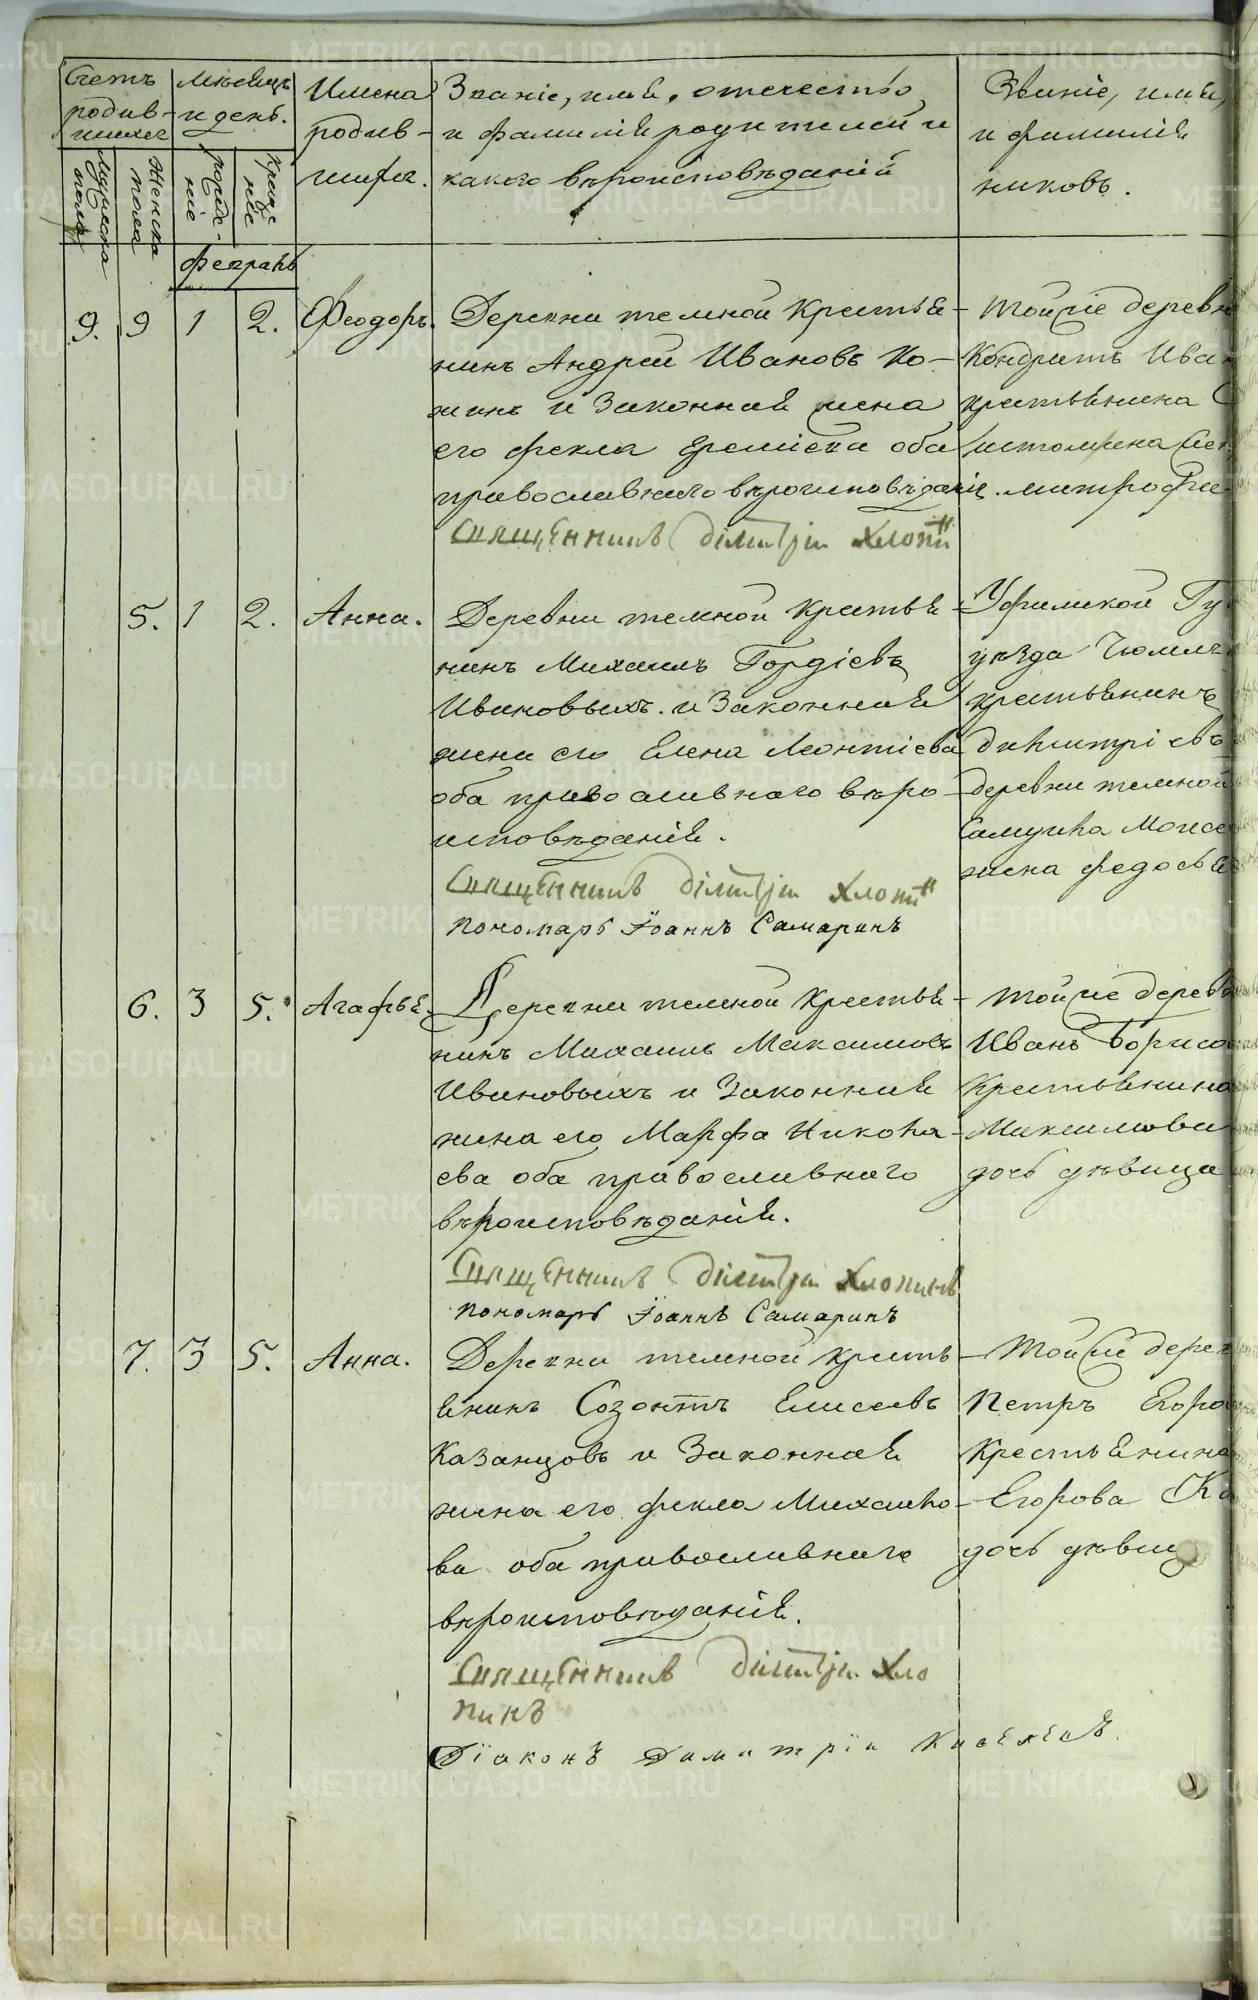 Счетъ родив-шихся
Мѣсяцъ и день.
Имена родив-шихся.
Званіе, имя, отечество, и фамилія родителей и какого вѣроисповѣданій
Званіе, имя, и фамилія
никовъ.
Мужеска пола
Женска пола
рожде-ніе
креще-ніе
февраль
9. 9 1 2. Феодоръ. Деревни темной крестья-
нинъ Андрей Ивановъ
и Законная жена
его фекла Еремѣева оба
православнаго вѣроисповѣданія.
Священникъ Дімитрій Хлопи
тойже деревни
Кондратъ
крестьянина
истомина
митрофа-
5. 1 2. Анна. Деревни темной крестья-
нинъ Михаилъ Гордіевъ
Ивановыхъ. и Законная
жена его Елена Леонтіева
оба православнаго вѣро-
исповѣданія.
Священникъ Дімитрій Хлопи
пономарь Іоаннъ Самаринъ
Уфимской Гу
уѣзда
крестьянинъ
димитріевъ
деревни темной
жена федосья
6. 3 5. Агафья. Деревни темной крестья-
нинъ Михаилъ Максимовъ
Ивановыхъ и Законная
жена его Марфа Никола-
ева оба православнаго
вѣроисповѣданія.
Священникъ Дімитрій Хлопинъ
пономарь Іоаннъ Самаринъ
тойже дерев
Иванъ Борисо
Крестьянина
Максимова
дочь дѣвица
7. 3 5. Анна. Деревни темной кресть-
янинъ Созонтъ Елисеевъ
Казанцовъ и Законная
жена его фекла Михайло-
ва оба православнаго
вѣроисповѣданія.
Священникъ Дімитрій Хло
пинъ
Діаконъ Димитрій Киселевъ.
тойже дерев
Петръ Егоро
Крестьянина
Егорова Ка
дочь дѣвиц
METRIKI.GASO-URAL.RU